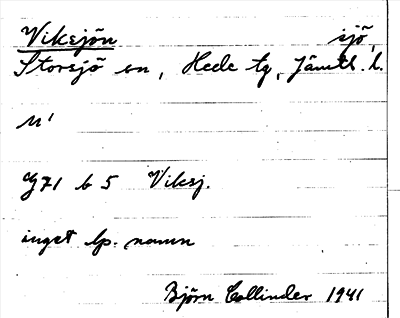 Viksjön sjö,
Storsjö sn, Hede tg, Jämtl. l.
N'
G71 b 5 Viksj.
inget lp. namn
Björn Collinder 1941